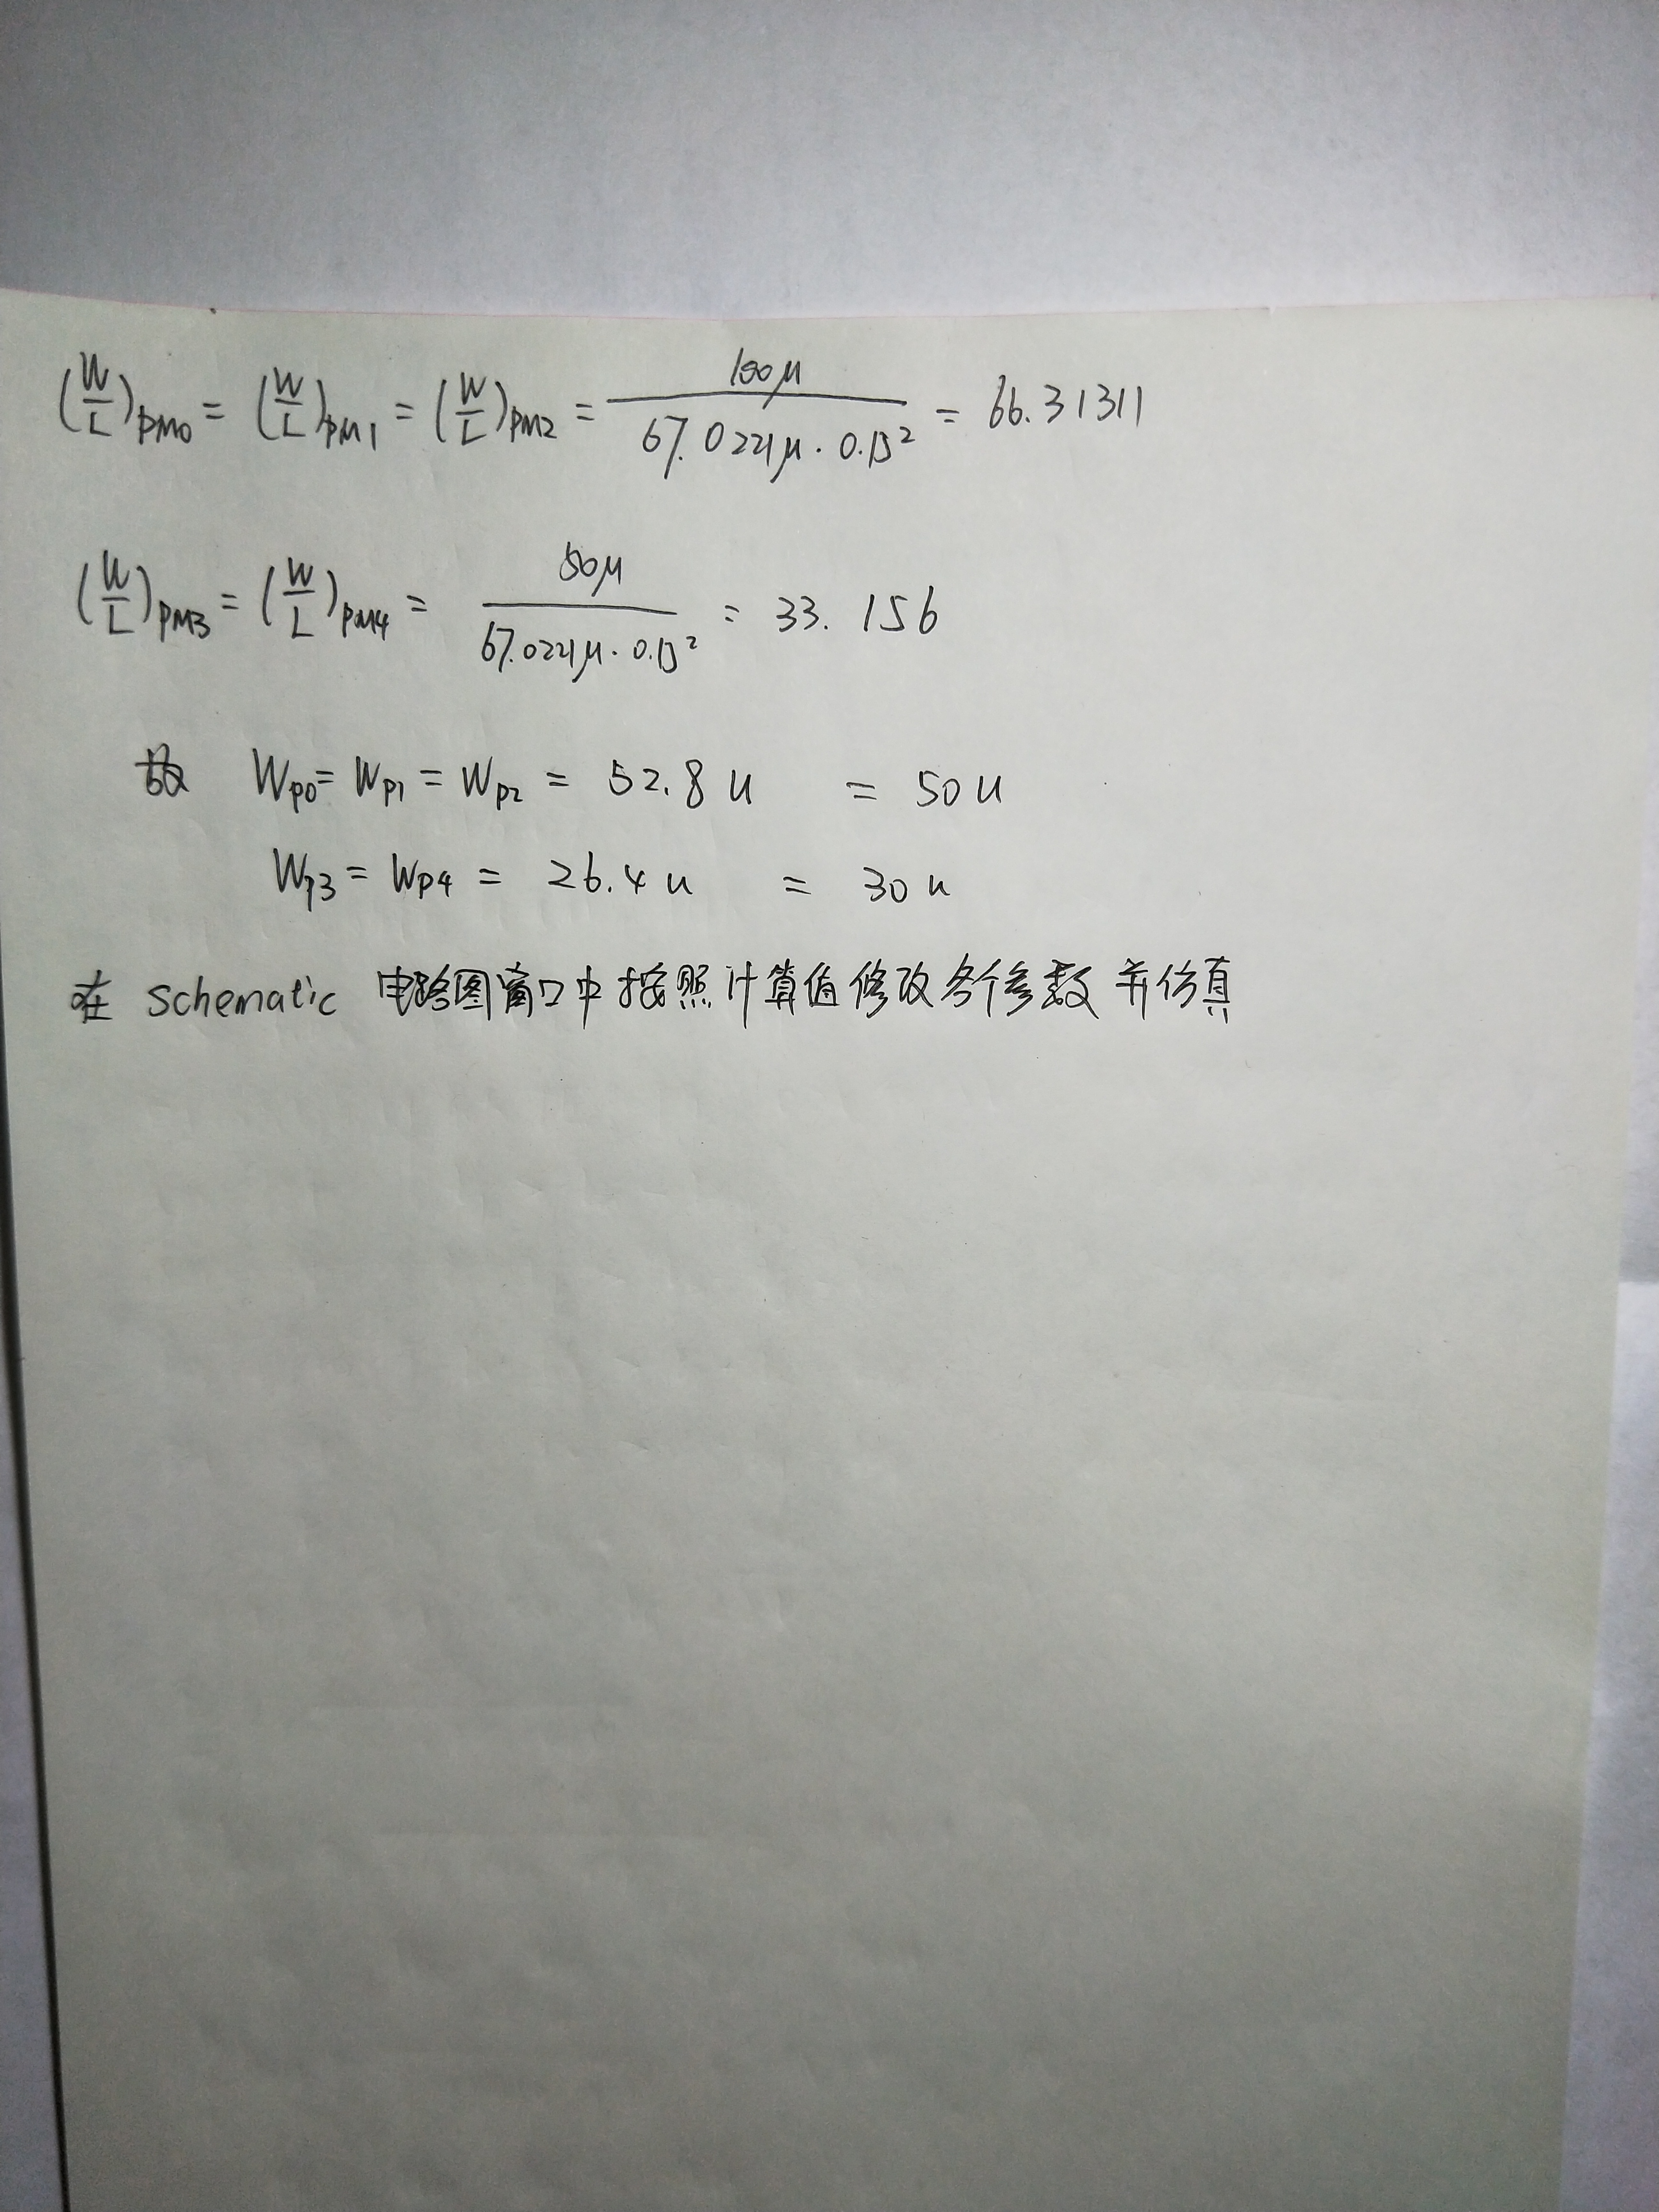 (W/L)PM0 = (W/L)PM1 = (W/L)PM2 = 100μ / 67.0221μ · 0.15² = 66.31311
(W/L)PM3 = (W/L)PM4 = 50μ / 67.0221μ · 0.15² = 33.156
故 Wp0 = Wp1 = Wp2 = 52.8 u = 50 u
Wp3 = Wp4 = 26.4 u = 30 u
在 schematic 电路图窗口中按照计算值修改各个参数并仿真